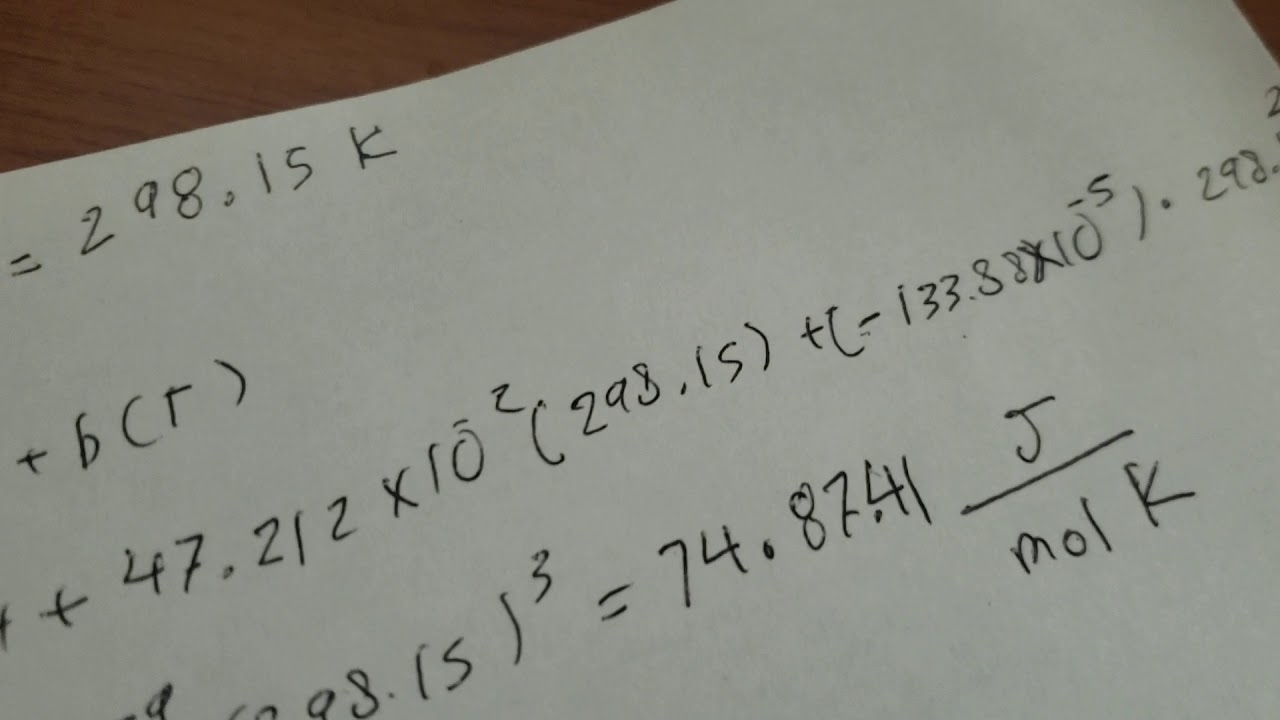 = 298.15 K
+ b(T)
+ 47.212 × 10⁻² (298.15) + (-133.88×10⁻⁵) · 298.
98.15)³ = 74.8741 J/mol K